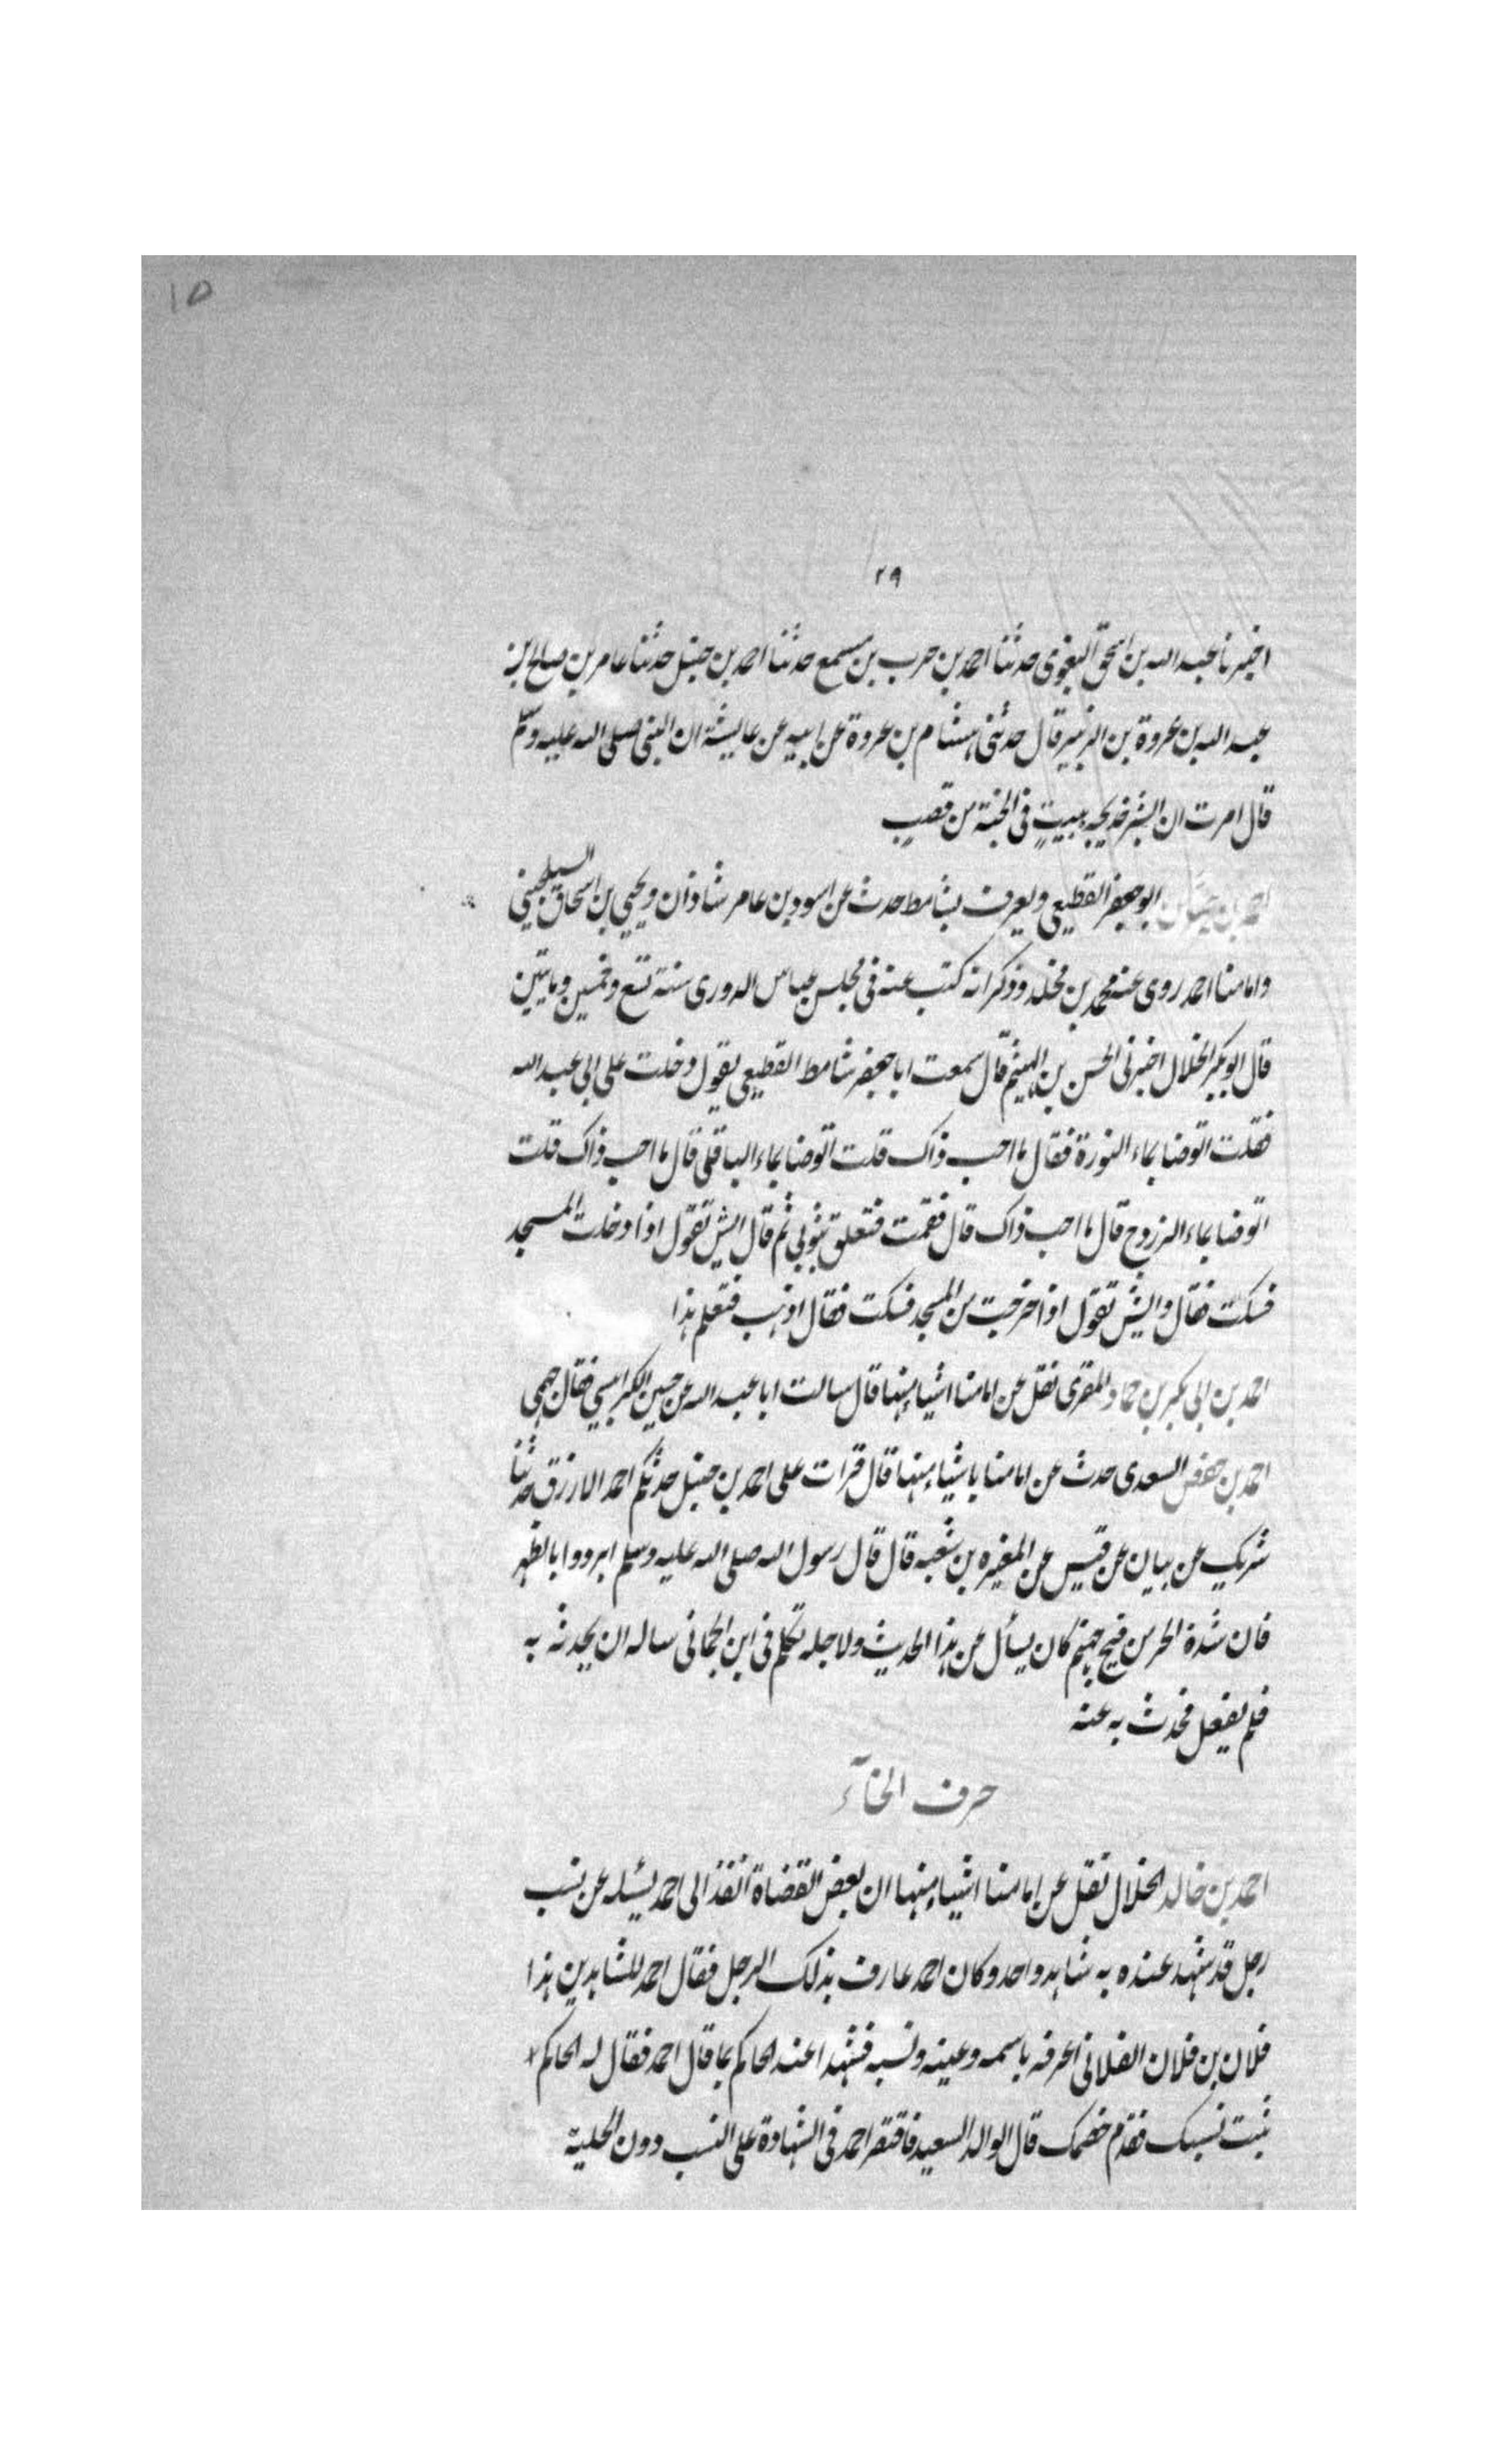 ١٥
٢٩
اخبرنا عبد الله بن اسحق البغوى حدثنا احمد بن حرب بن مسمع حدثنا احمد بن حنبل حدثنا عامر بن صالح بن
عبد الله بن عروة بن الزبير قال حدثنى هشام بن عروة عن ابيه عن عايشة ان النبى صلى الله عليه وسلم
قال امرت ان ابشر خديجه ببيتٍ فى الجنة من قصبٍ
احمد بن ابو جعفر القطيعى ويعرف بشامط حدث عن اسود بن عامر شاذان ويحيى بن اسحاق السيلحينى
وامامنا احمد روى عنه محمد بن مخلد وذكر انه كتب عنه فى مجلس عباس الدورى سنة تسع وخمسين وماتين
قال ابو بكر الخلال اخبرنى الحسن بن الهيثم قال سمعت ابا جعفر شامط القطيعى يقول دخلت على ابى عبد الله
فقلت اتوضا بماء النورة فقال ما احب ذاك قلت اتوضا بماء الباقلى قال ما احب ذاك قلت
اتوضا بماء الزروح قال ما احب ذاك قال فقمت فتعلق بثوبى ثم قال ايش تقول اذا دخلت المسجد
فسكت فقال وايش تقول اذا خرجت من المسجد فسكت فقال اذهب فتعلم هذا
احمد بن ابى بكر بن حماد المقرى نقل عن امامنا اشياء منها قال سالت ابا عبد الله عن حسين الكرابيسى فقال جهمى
احمد بن حفص السعدى حدث عن امامنا باشياء منها قال قرات على احمد بن حنبل حدثكم احمد الازرق حدثنا
شريك عن بيان عن قيس عن المغيره بن شعبه قال قال رسول الله صلى الله عليه وسلم ابردوا بالظهر
فان شدة الحر من فيح جهنم كان يسأل عن هذا الحديث ولاجله تكلم فى ابن الحمانى ساله ان يحدثه به
فلم يفعل فحدث به عنه
حرف الخآء
احمد بن خالد الخلال نقل عن امامنا اشياء منها ان بعض القضاة انفذ الى احمد يسئله عن نسب
رجل قد شهد عنده به شاهد واحد وكان احمد عارف بذلك الرجل فقال احمد للشاهدين هذا
فلان بن فلان الفلانى اعرفه باسمه وعينه ونسبه فشهدا عند الحاكم بما قال احمد فقال له الحاكم
ثبت نسبك فقدم خصمك قال الوالد السعيد فاقتصر احمد فى الشهادة على النسب دون الحلية